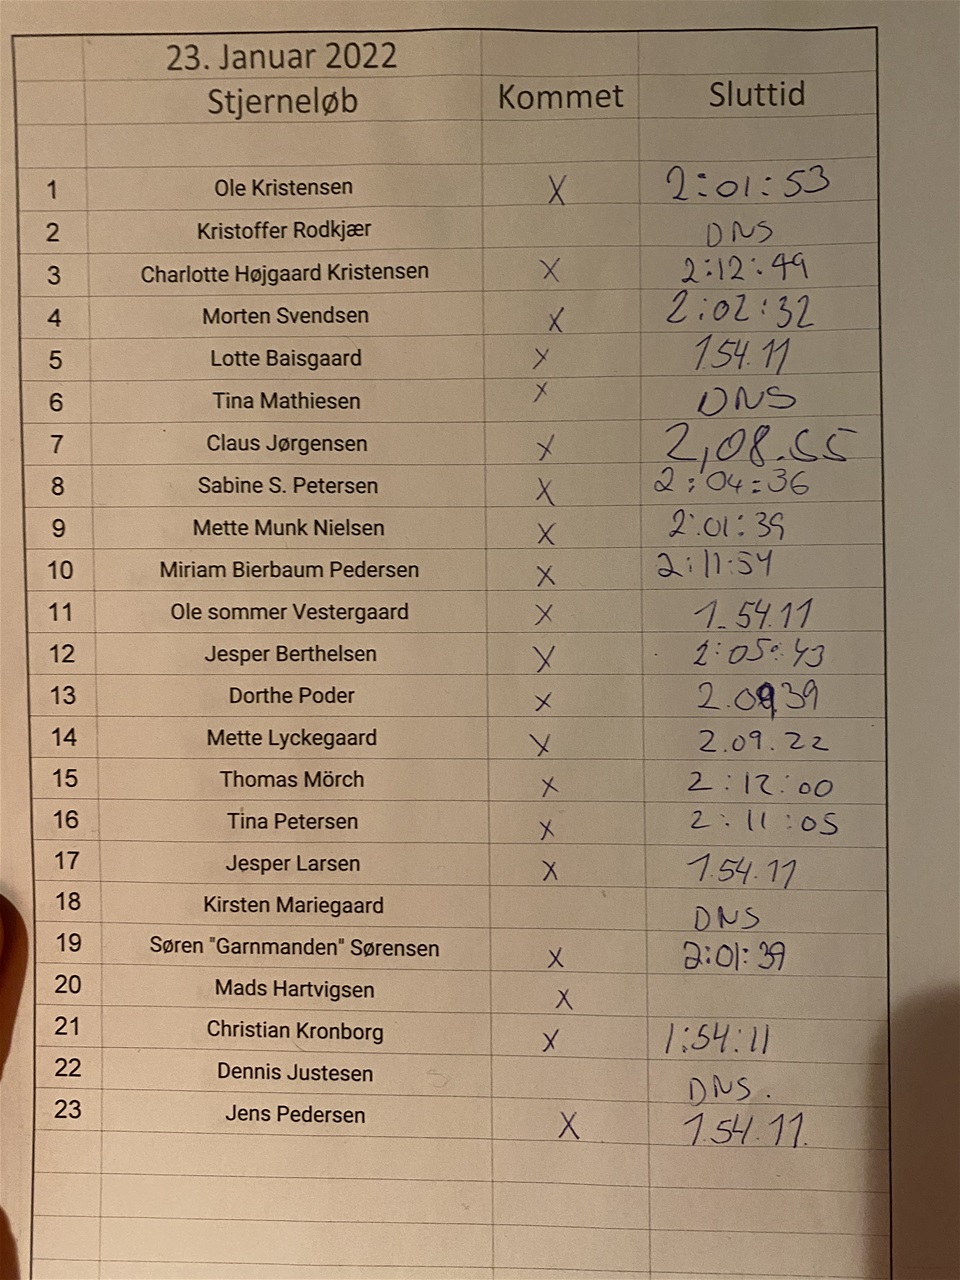 23. Januar 2022
Stjerneløb Kommet Sluttid
1 Ole Kristensen X 2:01:53
2 Kristoffer Rodkjær DNS
3 Charlotte Højgaard Kristensen X 2:12:49
4 Morten Svendsen X 2:02:32
5 Lotte Baisgaard X 1.54.11
6 Tina Mathiesen X DNS
7 Claus Jørgensen X 2,08.55
8 Sabine S. Petersen X 2:04:36
9 Mette Munk Nielsen X 2:01:39
10 Miriam Bierbaum Pedersen X 2:11:54
11 Ole sommer Vestergaard X 1.54.11
12 Jesper Berthelsen X 2:05:43
13 Dorthe Poder X 2.09.39
14 Mette Lyckegaard X 2.09.22
15 Thomas Mörch X 2:12:00
16 Tina Petersen X 2:11:05
17 Jesper Larsen X 1.54.11
18 Kirsten Mariegaard DNS
19 Søren "Garnmanden" Sørensen X 2:01:39
20 Mads Hartvigsen X
21 Christian Kronborg X 1:54:11
22 Dennis Justesen DNS.
23 Jens Pedersen X 1.54.11.